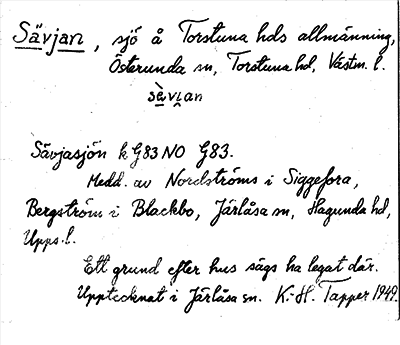 Sävjan, sjö å Torstuna hds allmänning,
Österunda sn, Torstuna hd, Västm. l.
sὲvi̯an
Sävjasjön k G83 NO G83.
Medd. av Nordströms i Siggefora,
Bergström i Blackbo, Järlåsa sn, Hagunda hd,
Upps. l.
Ett grund efter hus sägs ha legat där.
Upptecknat i Järlåsa sn. K.-H. Tapper 1949.